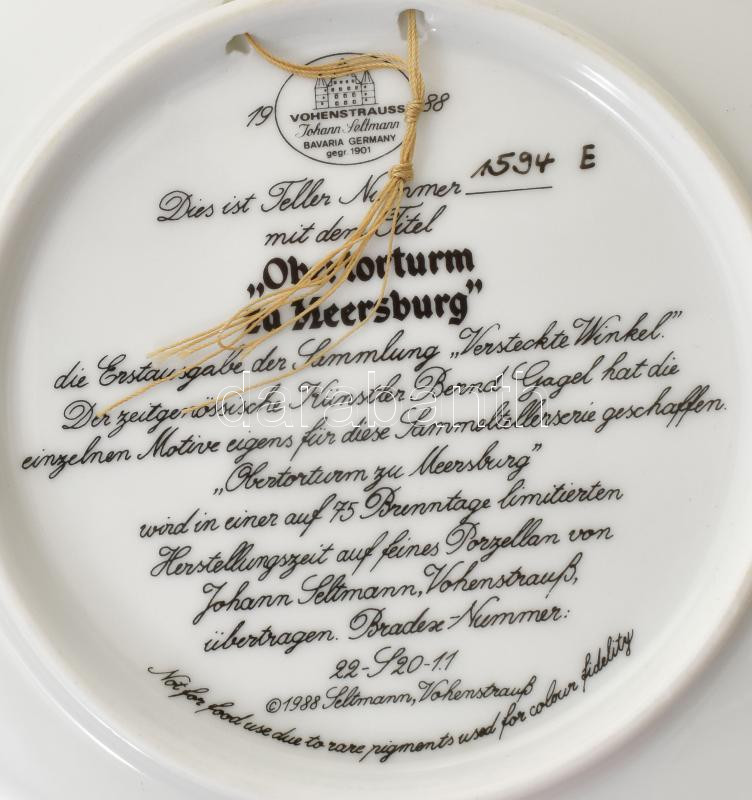 19 88
VOHENSTRAUSS
Johann Seltmann
BAVARIA GERMANY
gegr. 1901
Dies ist Teller Nummer 1594 E
mit dem Titel
„Obertorturm
zu Meersburg”
die Erstausgabe der Sammlung „Versteckte Winkel.”
Der zeitgenössische Künstler Bernd Gagel hat die
einzelnen Motive eigens für diese Sammeltellerserie geschaffen.
„Obertorturm zu Meersburg”
wird in einer auf 75 Brenntage limitierten
Herstellungszeit auf feines Porzellan von
Johann Seltmann, Vohenstrauß,
übertragen. Bradex-Nummer:
22-S20-1.1
©1988 Seltmann, Vohenstrauß
Not for food use due to rare pigments used for colour fidelity
darabanth